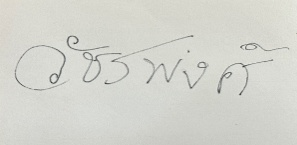 วัชรพงศ์